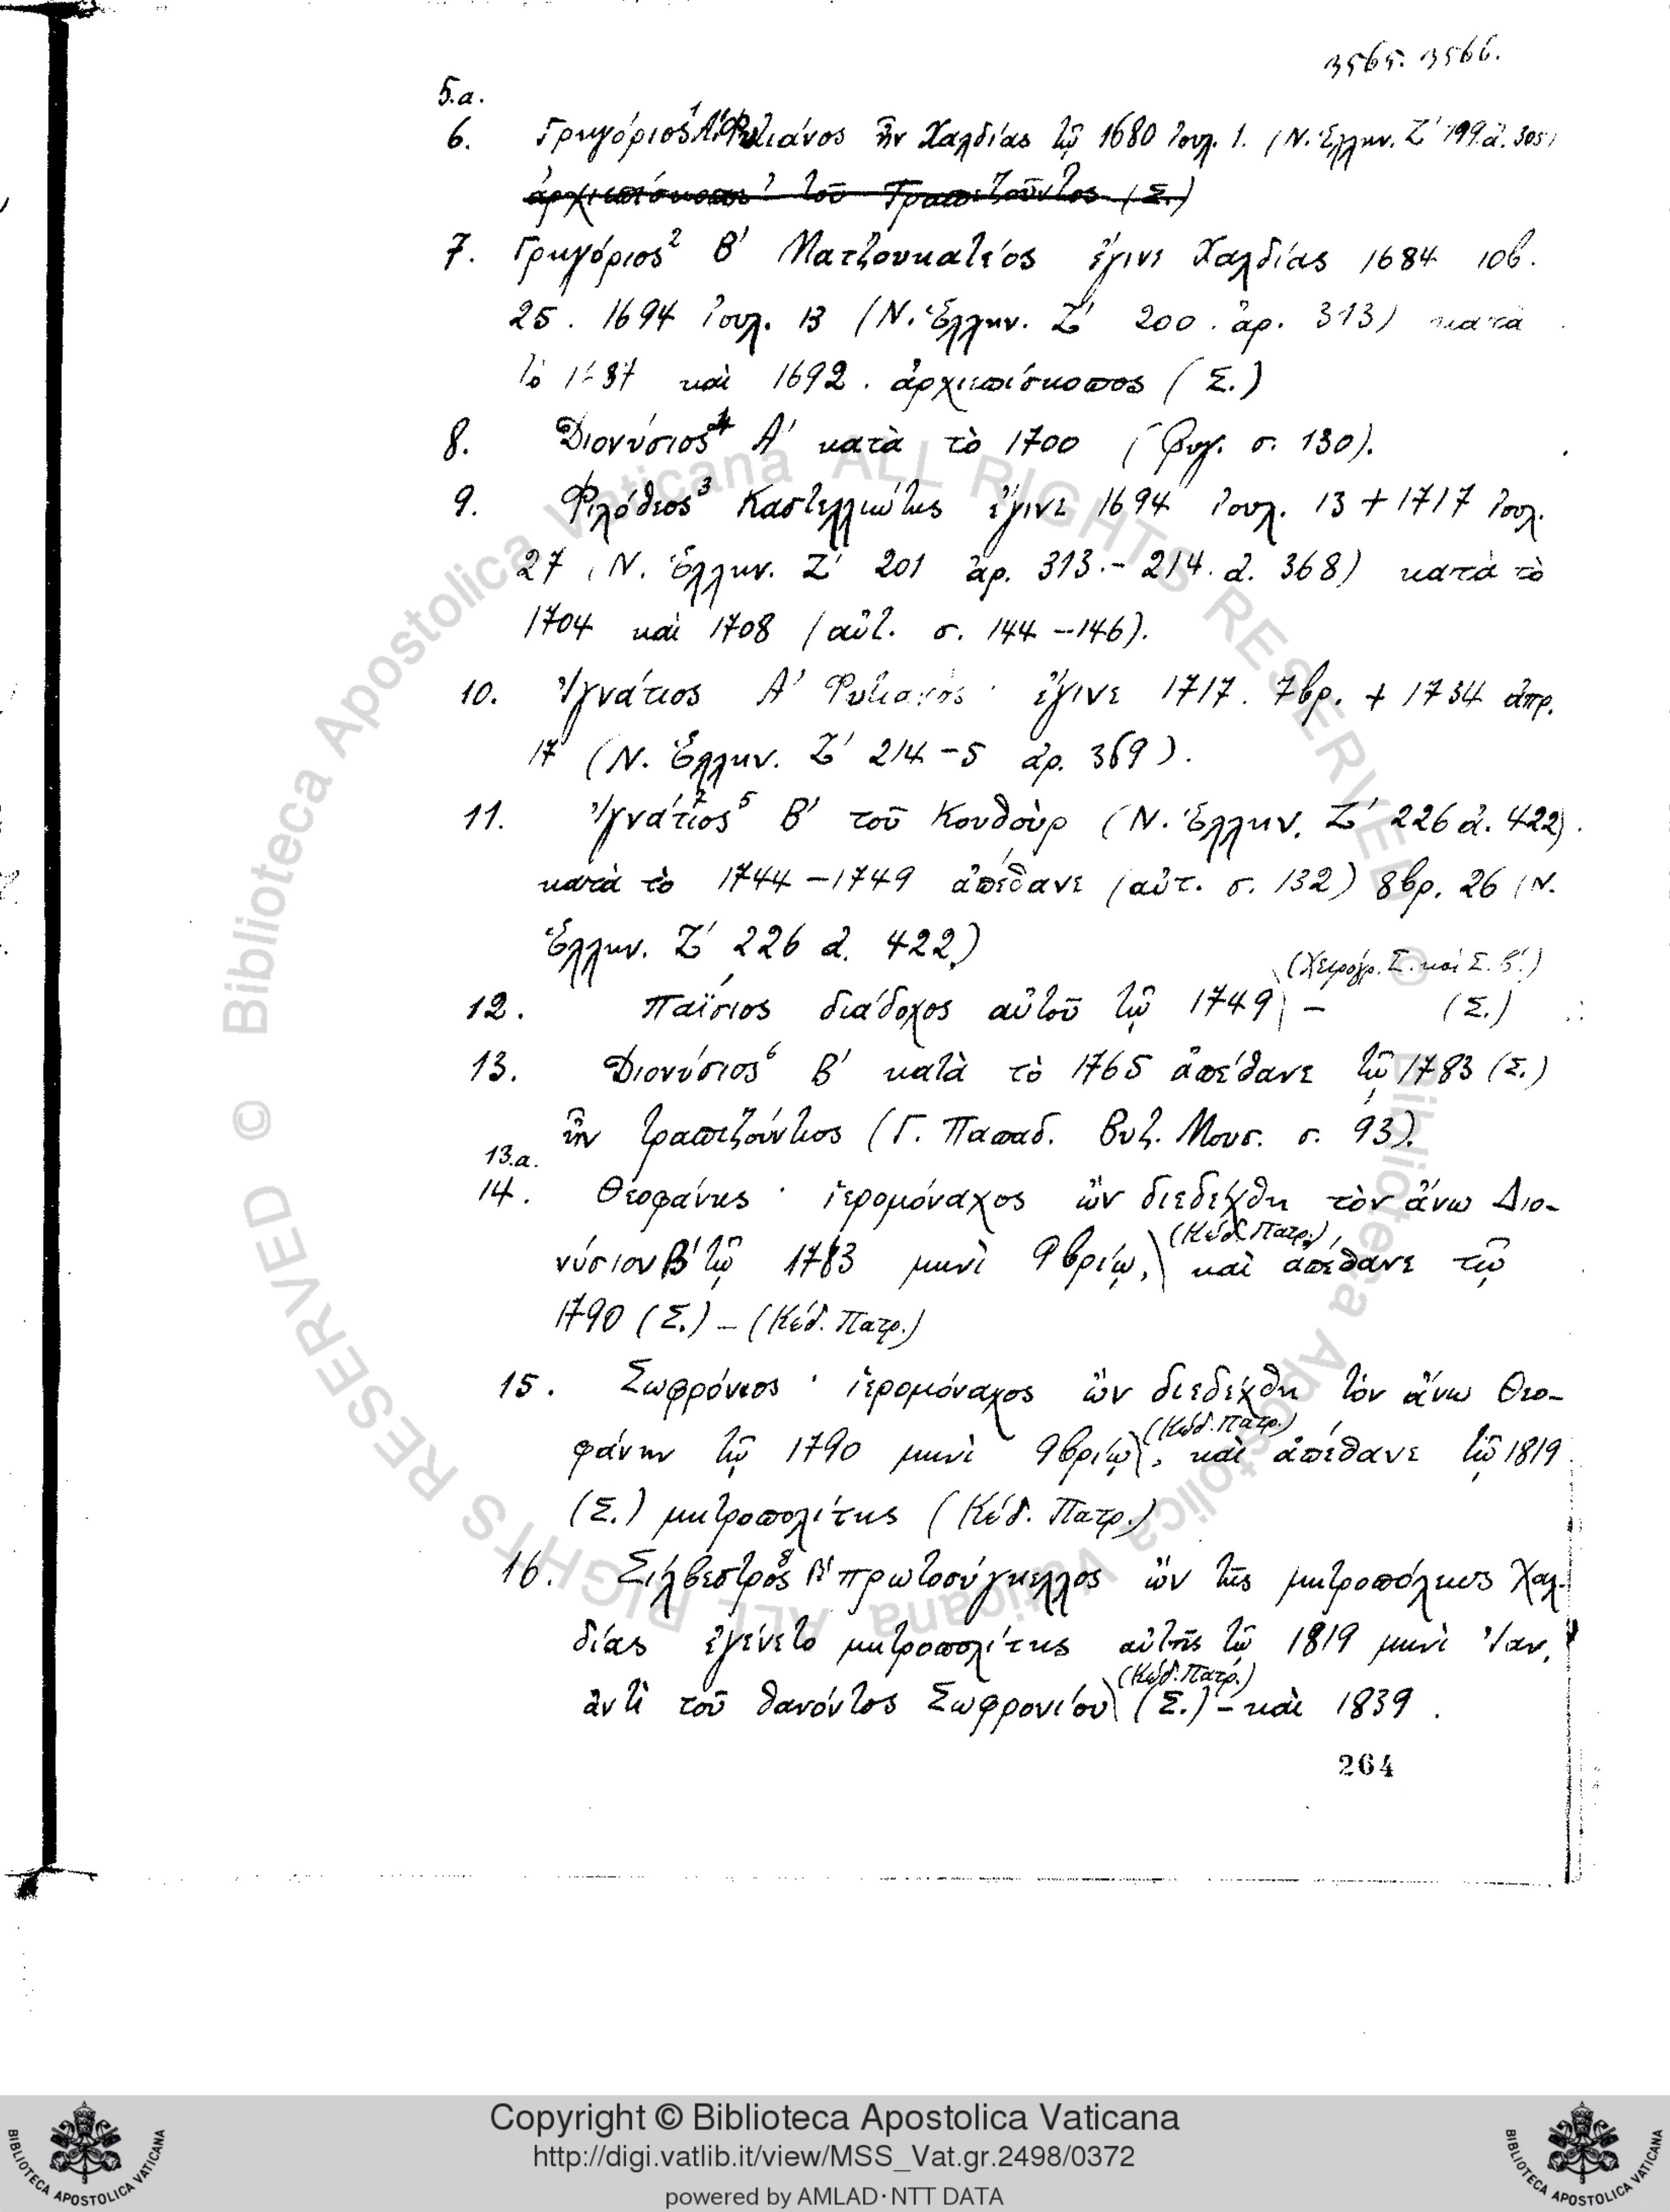 3565. 3566.
5.α.
6. Γρηγόριος¹ Α' Φυτιάνος ἦν Χαλδίας τῷ 1680 Ἰουλ. 1. (Ν. Ἑλλην. Ζ' 199 ἀ. 305)
ἀρχιεπίσκοπος τοῦ Τραπεζοῦντος (Σ.)
7. Γρηγόριος² Β' Ματζουκατέος ἔγινε Χαλδίας 1684 10β.
25. 1694 Ἰουλ. 13 (Ν. Ἑλλην. Ζ' 200. ἀρ. 313) κατὰ
τὸ 1687 καὶ 1692. ἀρχιεπίσκοπος (Σ.)
8. Διονύσιος⁴ Α' κατὰ τὸ 1700 (σ. 130).
9. Φιλόθεος³ Καστελλιώτης ἔγινε 1694 Ἰουλ. 13 + 1717 Ἰουλ.
27 (Ν. Ἑλλην. Ζ' 201 ἀρ. 313.- 214. ἀ. 368) κατὰ τὸ
1704 καὶ 1708 (αὐτ. σ. 144-146).
10. Ἰγνάτιος Α' Φυτιανός· ἔγινε 1717. 7βρ. + 1734 ἀπρ.
17 (Ν. Ἑλλην. Ζ' 214-5 ἀρ. 369).
11. Ἰγνάτιος⁵ Β' τοῦ Κουθοὺρ (Ν. Ἑλλην. Ζ' 226 ἀ. 422).
κατὰ τὸ 1744-1749 ἀπέθανε (αὐτ. σ. 132) 8βρ. 26 (Ν.
Ἑλλην. Ζ' 226 ἀ. 422)
(Χειρόγρ. Σ. καὶ Σ. β'.)
12. Παΐσιος διάδοχος αὐτοῦ τῷ 1749 - (Σ.)
13. Διονύσιος⁶ Β' κατὰ τὸ 1765 ἀπέθανε τῷ 1783 (Σ.)
ἦν τραπεζούντιος (Γ. Παπαδ. Βυζ. Μουσ. σ. 93).
13.α.
14. Θεοφάνης· ἱερομόναχος ὢν διεδέχθη τὸν ἄνω Διο-
(Κώδ. Πατρ.)
νύσιον Β' τῷ 1783 μηνὶ 9βρίῳ, καὶ ἀπέθανε τῷ
1790 (Σ.) - (Κώδ. Πατρ.)
15. Σωφρόνιος· ἱερομόναχος ὢν διεδέχθη τὸν ἄνω Θεο-
(Κώδ. Πατρ.)
φάνην τῷ 1790 μηνὶ 9βρίῳ, καὶ ἀπέθανε τῷ 1819
(Σ.) μητροπολίτης (Κώδ. Πατρ.)
16. Σίλβεστρος⁸ Α' πρωτοσύγκελλος ὢν τῆς μητροπόλεως Χαλ-
δίας ἐγένετο μητροπολίτης αὐτῆς τῷ 1819 μηνὶ Ἰαν.
(Κώδ. Πατρ.)
ἀντὶ τοῦ θανόντος Σωφρονίου (Σ.) - καὶ 1839.
264
© Biblioteca Apostolica Vaticana ALL RIGHTS RESERVED © Biblioteca Apostolica Vaticana ALL RIGHTS RESERVED
Copyright © Biblioteca Apostolica Vaticana
http://digi.vatlib.it/view/MSS_Vat.gr.2498/0372
powered by AMLAD·NTT DATA
BIBLIOTECA APOSTOLICA VATICANA
BIBLIOTECA APOSTOLICA VATICANA